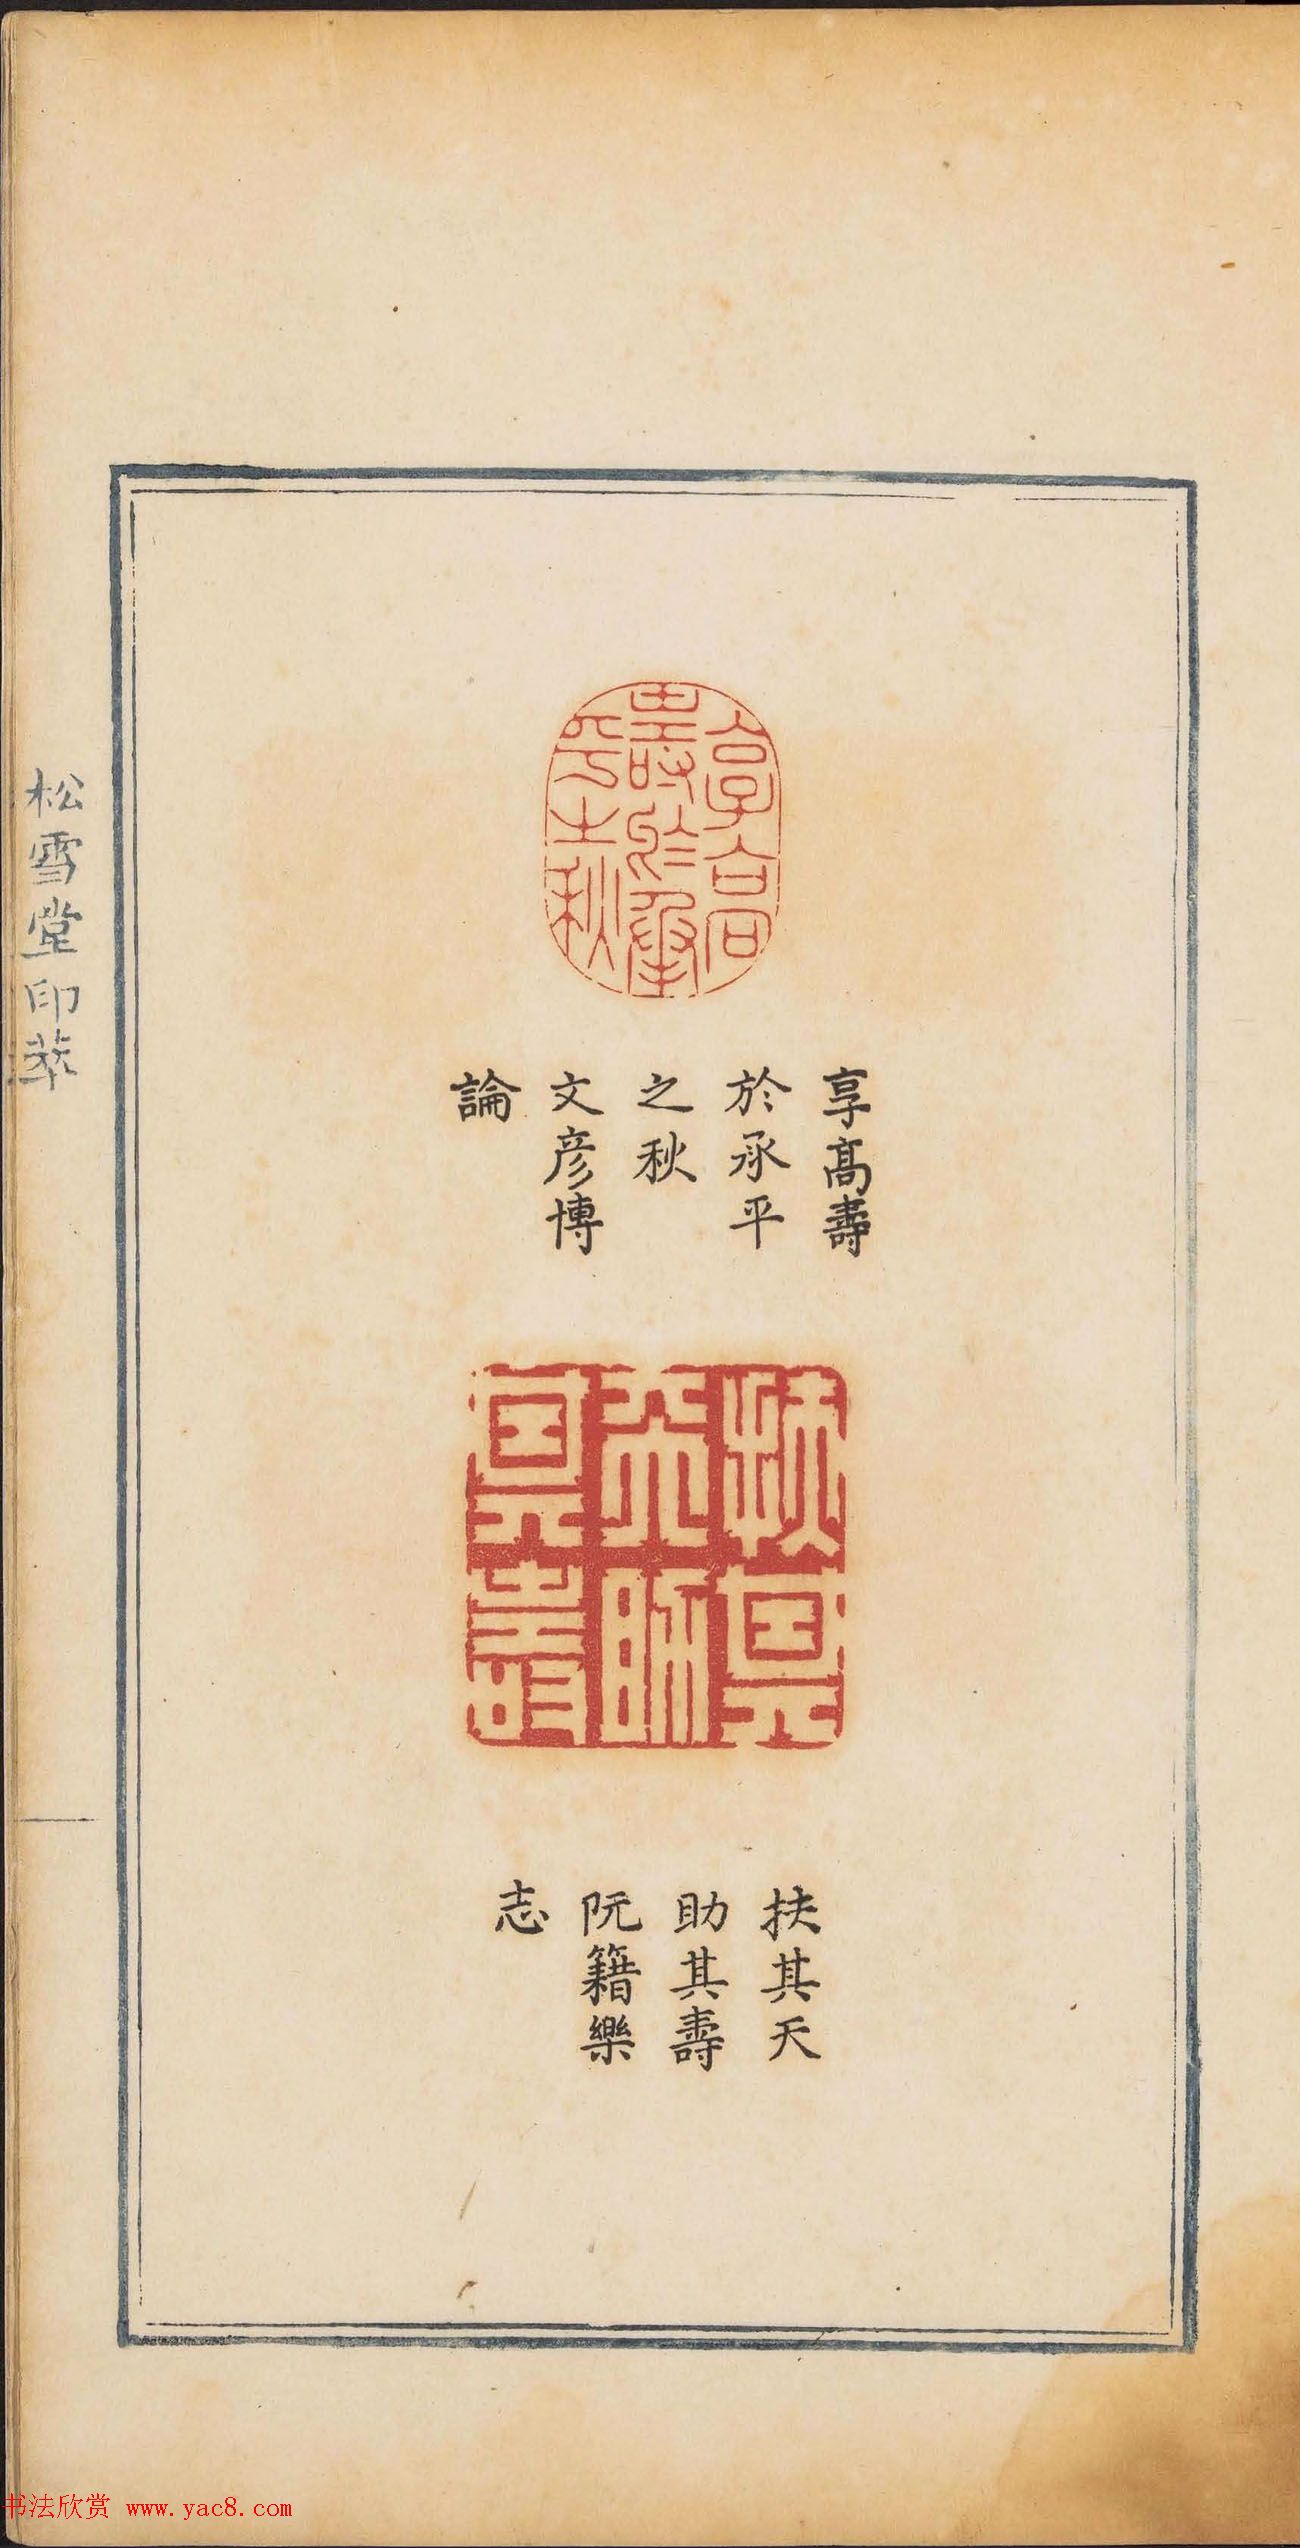 享高壽於承平之秋
享髙壽
於承平
之秋
文彦博
論
扶其天助其壽
扶其天
助其壽
阮籍樂
志
松雪堂印萃
书法欣赏 www.yac8.com